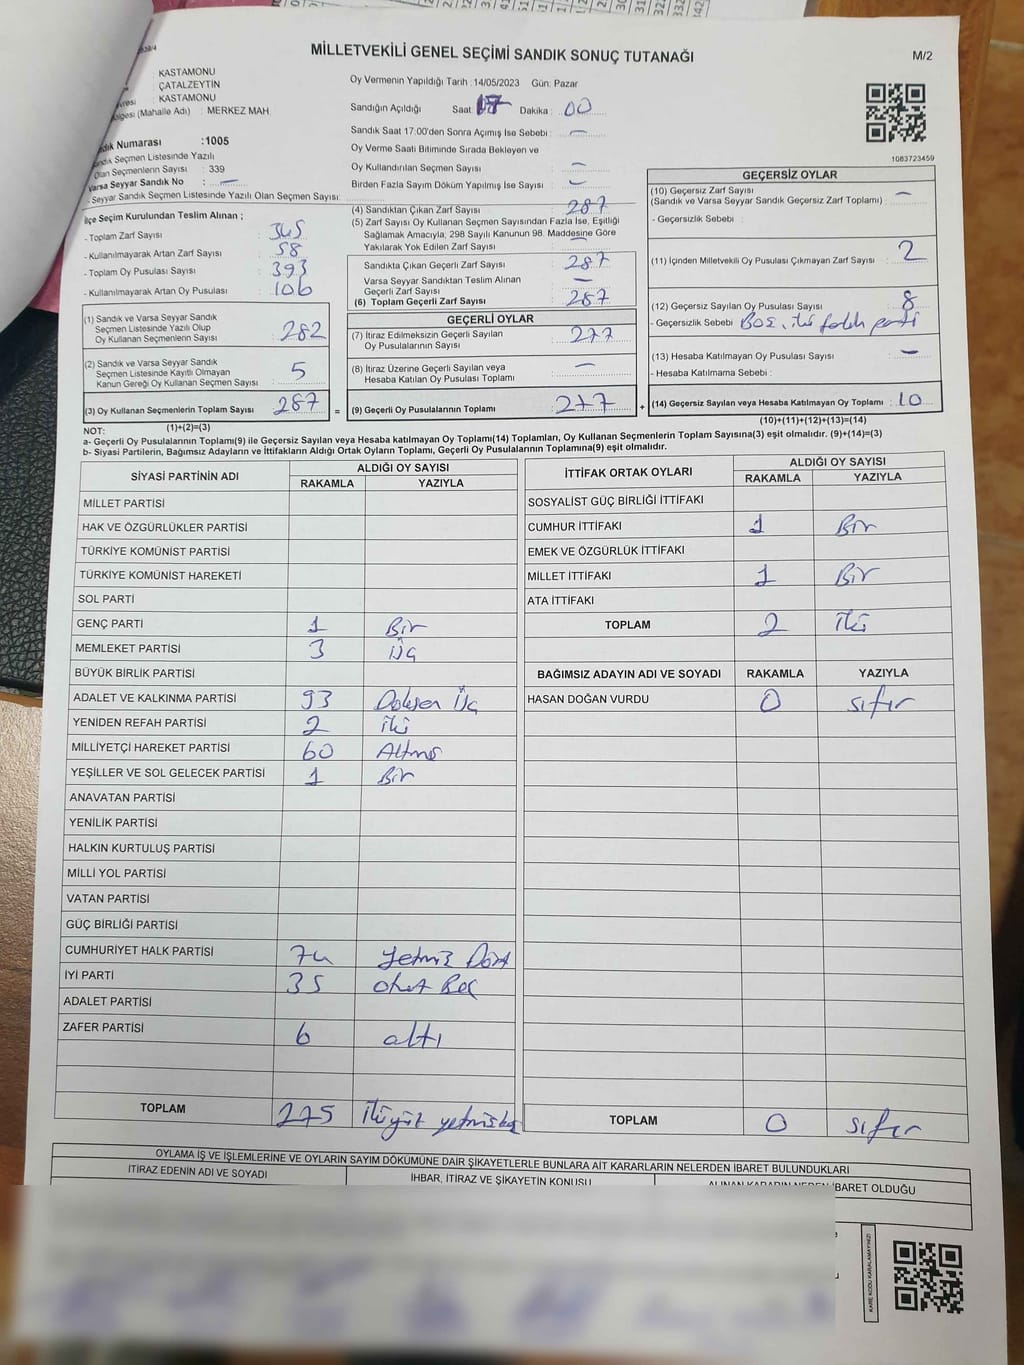 MİLLETVEKİLİ GENEL SEÇİMİ SANDIK SONUÇ TUTANAĞI
M/2
KASTAMONU
ÇATALZEYTİN
KASTAMONU
(Mahalle Adı) : MERKEZ MAH
Numarası :1005
Sandık Seçmen Listesinde Yazılı
Olan Seçmenlerin Sayısı : 339
Varsa Seyyar Sandık No : –
- Seyyar Sandık Seçmen Listesinde Yazılı Olan Seçmen Sayısı:
Oy Vermenin Yapıldığı Tarih :14/05/2023 Gün: Pazar
Sandığın Açıldığı Saat: 17 Dakika : 00
Sandık Saat 17:00'den Sonra Açımış İse Sebebi : –
Oy Verme Saati Bitiminde Sırada Bekleyen ve
Oy Kullandırılan Seçmen Sayısı : –
Birden Fazla Sayım Döküm Yapılmış İse Sayısı : –
1083723459
İlçe Seçim Kurulundan Teslim Alınan ;
- Toplam Zarf Sayısı : 345
- Kullanılmayarak Artan Zarf Sayısı : 58
- Toplam Oy Pusulası Sayısı : 393
- Kullanılmayarak Artan Oy Pusulası : 106
(1) Sandık ve Varsa Seyyar Sandık
Seçmen Listesinde Yazılı Olup
Oy Kullanan Seçmenlerin Sayısı : 282
(2) Sandık ve Varsa Seyyar Sandık
Seçmen Listesinde Kayıtlı Olmayan
Kanun Gereği Oy Kullanan Seçmen Sayısı : 5
(3) Oy Kullanan Seçmenlerin Toplam Sayısı : 287 =
(1)+(2)=(3)
(4) Sandıktan Çıkan Zarf Sayısı : 287
(5) Zarf Sayısı Oy Kullanan Seçmen Sayısından Fazla İse, Eşitliği
Sağlamak Amacıyla; 298 Sayılı Kanunun 98. Maddesine Göre
Yakılarak Yok Edilen Zarf Sayısı : –
Sandıkta Çıkan Geçerli Zarf Sayısı : 287
Varsa Seyyar Sandıktan Teslim Alınan
Geçerli Zarf Sayısı : –
(6) Toplam Geçerli Zarf Sayısı : 287
GEÇERLİ OYLAR
(7) İtiraz Edilmeksizin Geçerli Sayılan
Oy Pusulalarının Sayısı : 277
(8) İtiraz Üzerine Geçerli Sayılan veya
Hesaba Katılan Oy Pusulası Toplamı : –
(9) Geçerli Oy Pusulalarının Toplamı : 277 +
GEÇERSİZ OYLAR
(10) Geçersiz Zarf Sayısı : –
(Sandık ve Varsa Seyyar Sandık Geçersiz Zarf Toplamı)
- Geçersizlik Sebebi :
(11) İçinden Milletvekili Oy Pusulası Çıkmayan Zarf Sayısı : 2
(12) Geçersiz Sayılan Oy Pusulası Sayısı : 8
- Geçersizlik Sebebi : Boş, iki farklı parti
(13) Hesaba Katılmayan Oy Pusulası Sayısı : –
- Hesaba Katılmama Sebebi :
(14) Geçersiz Sayılan veya Hesaba Katılmayan Oy Toplamı : 10
(10)+(11)+(12)+(13)=(14)
NOT:
a- Geçerli Oy Pusulalarının Toplamı(9) ile Geçersiz Sayılan veya Hesaba katılmayan Oy Toplamı(14) Toplamları, Oy Kullanan Seçmenlerin Toplam Sayısına(3) eşit olmalıdır. (9)+(14)=(3)
b- Siyasi Partilerin, Bağımsız Adayların ve İttifakların Aldığı Ortak Oyların Toplamı, Geçerli Oy Pusulalarının Toplamına(9) eşit olmalıdır.
SİYASİ PARTİNİN ADI ALDIĞI OY SAYISI
RAKAMLA YAZIYLA
MİLLET PARTİSİ
HAK VE ÖZGÜRLÜKLER PARTİSİ
TÜRKİYE KOMÜNİST PARTİSİ
TÜRKİYE KOMÜNİST HAREKETİ
SOL PARTİ
GENÇ PARTİ 1 Bir
MEMLEKET PARTİSİ 3 Üç
BÜYÜK BİRLİK PARTİSİ
ADALET VE KALKINMA PARTİSİ 93 Doksan Üç
YENİDEN REFAH PARTİSİ 2 iki
MİLLİYETÇİ HAREKET PARTİSİ 60 Altmış
YEŞİLLER VE SOL GELECEK PARTİSİ 1 Bir
ANAVATAN PARTİSİ
YENİLİK PARTİSİ
HALKIN KURTULUŞ PARTİSİ
MİLLİ YOL PARTİSİ
VATAN PARTİSİ
GÜÇ BİRLİĞİ PARTİSİ
CUMHURİYET HALK PARTİSİ 74 Yetmiş Dört
İYİ PARTİ 35 otuz Beş
ADALET PARTİSİ
ZAFER PARTİSİ 6 altı
TOPLAM 275 ikiyüz yetmişbeş
İTTİFAK ORTAK OYLARI ALDIĞI OY SAYISI
RAKAMLA YAZIYLA
SOSYALİST GÜÇ BİRLİĞİ İTTİFAKI
CUMHUR İTTİFAKI 1 Bir
EMEK VE ÖZGÜRLÜK İTTİFAKI
MİLLET İTTİFAKI 1 Bir
ATA İTTİFAKI
TOPLAM 2 iki
BAĞIMSIZ ADAYIN ADI VE SOYADI RAKAMLA YAZIYLA
HASAN DOĞAN VURDU 0 sıfır
TOPLAM 0 sıfır
OYLAMA İŞ VE İŞLEMLERİNE VE OYLARIN SAYIM DÖKÜMÜNE DAİR ŞİKAYETLERLE BUNLARA AİT KARARLARIN NELERDEN İBARET BULUNDUKLARI
İTİRAZ EDENİN ADI VE SOYADI
İHBAR, İTİRAZ VE ŞİKAYETİN KONUSU
ALINAN KARARIN NEDEN İBARET OLDUĞU
KARE KODU KARALAMAYINIZ!